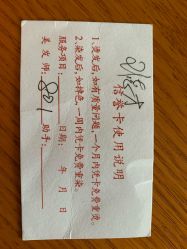 信誉卡使用说明
1、烫发后,如有质量问题,一个月内凭卡免费重烫。
2、染发后,如掉色,一周内凭卡免费重染。
服务项目: 日期: 年 月 日
美发师: 801 助手: